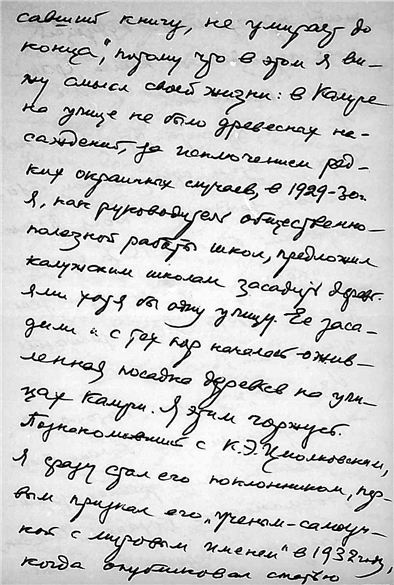 савший книгу, не умирает до
конца", потому что в этом я ви-
жу смысл своей жизни: в Калуге
на улице не было древесных на-
саждений, за исключением ред-
ких окраинных случаев, в 1929-30г.
я, как руководитель общественно-
полезной работы школ, предложил
калужским школам засадить деревь-
ями хотя бы одну улицу. Ее заса-
дили и с тех пор началась ожив-
ленная посадка деревьев на ули-
цах Калуги. Я этим горжусь.
Познакомившись с К.Э.Циолковским,
я сразу стал его поклонником, пер-
вым признал его "ученым-самоуч-
кой с мировым именем" в 1932 году,
когда опубликовал статью